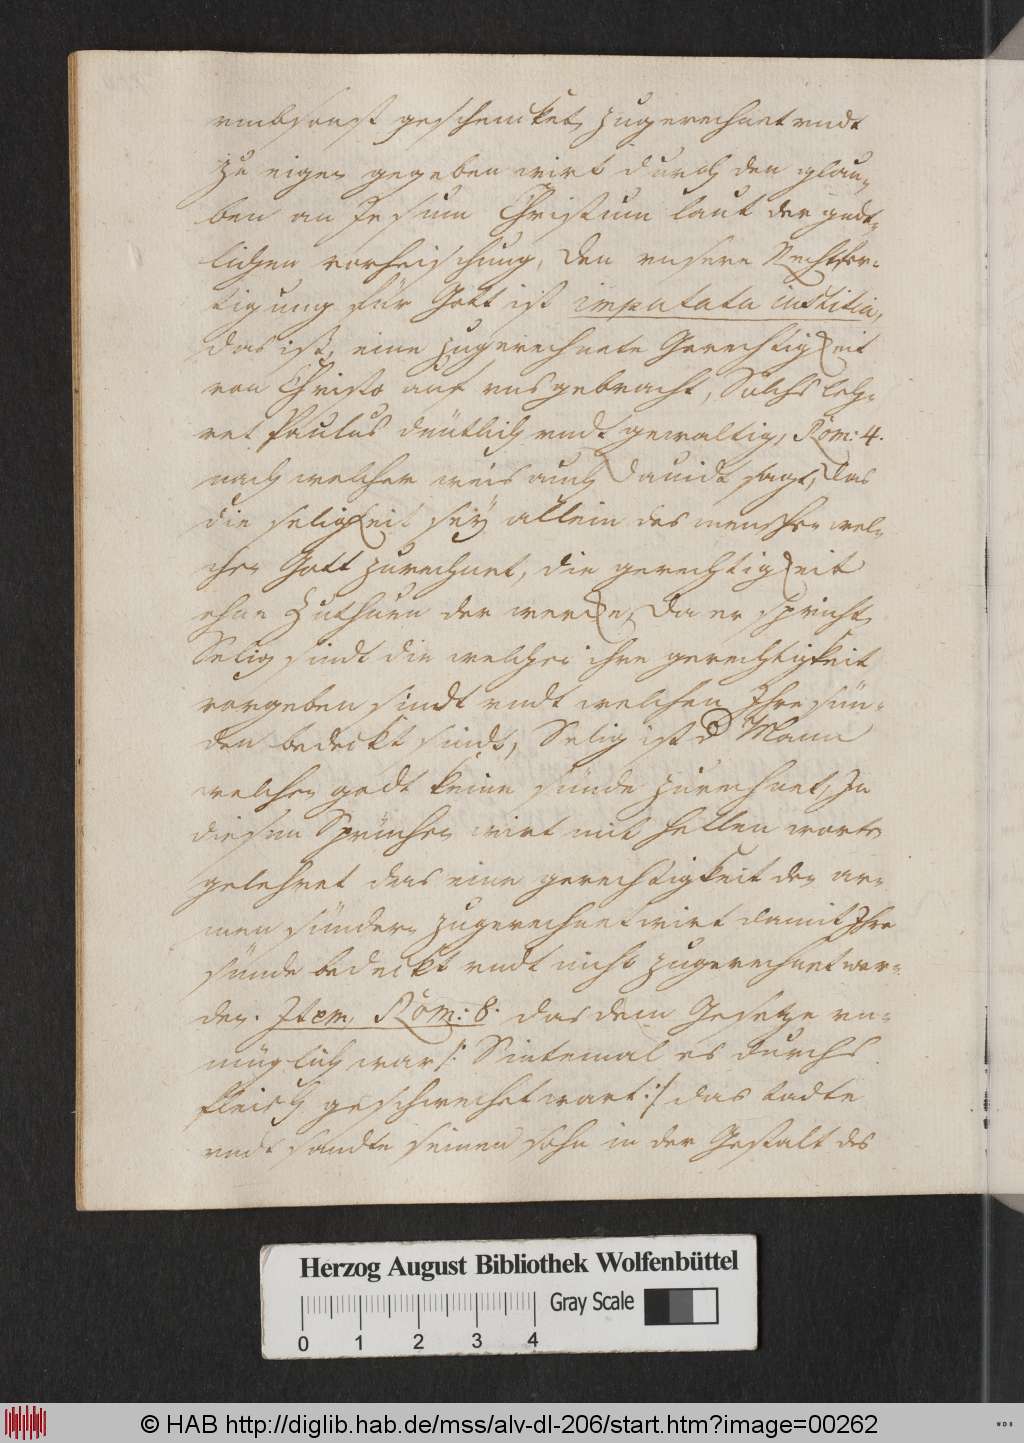 umbsonst geschencket, zugerechnet undt
zu eigen gegeben wirt durch den glau-
ben an Jesum Christum laut der gudt-
lichen vorheischung, den unsere Rechtfer-
tigung für Gott ist imputata iustitia,
das ist, eine zugerechnete Gerechtigkeit
von Christo auf uns gebracht, Solchs leh-
ret Paulus deutlich undt gewaltig, Röm: 4.
nach welcher weis auch Dauidt sagt, das
die seligkeit sey allein des menschen wel-
chen Gott zurechnet, die gerechtigkeit
ohne Zuthuen der wercke, da er spricht,
Selig sindt die welchen ihre gerechtigkeit
vorgeben sindt undt welchen Ihre sün-
den bedeckt sindt, Selig ist d Mann
welchen godt keine sünde zurechnet, In
diesen Sprüchen wirt mit hellen worten
gelehret das eine gerechtigkeit den ar-
men sündern zugerechnet wirt damit Ihre
sünde bedeckt undt nicht zugerechnet wer-
den. Item, Röm: 8. das dem Gesetze un-
müglich war /: Sintemal es durchs
fleisch geschwechet wart :/ das tadte
undt sandte seinen sohn in der Gestalt des
Herzog August Bibliothek Wolfenbüttel
Gray Scale
0 1 2 3 4
© HAB http://diglib.hab.de/mss/alv-dl-206/start.htm?image=00262